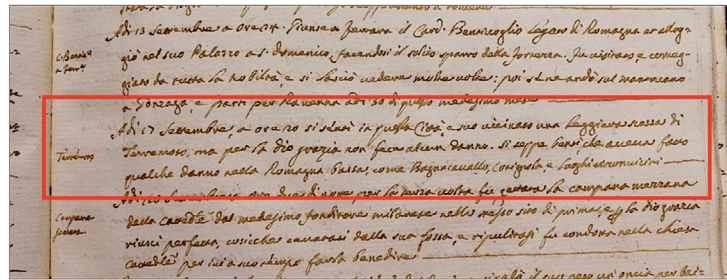 Adi 13 Settembre a ore 24. Giunse a Ferrara il Card. Bentivoglio Legato di Romagna et allog-
giò nel suo Palazzo a S. Domenico, facendosi il solito sparo della Fortezza. Fu visitato, e corteg-
giato da tutta la Nobiltà, e si lasciò vedere molte volte: poi se ne andò sul mantovano
a Gonzaga, e partì per Ravenna adi 30 di questo medesimo mese
Adi 17 Settembre, a ore 10 si sentì in questa Città, e suo vicinato una leggiera scossa di
Terremoto
Terremoto, ma per la dio grazia non fece alcun danno. Si seppe bensì che aveva fatto
qualche danno nella Romagna bassa, come Bagnacavallo, Cotignola, e luoghi circonvicini
Adi 20 Settembre a ore diecinove, per la terza volta fu gettata la campana mezzana
Campana
della Cattedle dal medesimo fonditore milanese nello stesso sito di prima, e p la dio grazia
riuscì perfetta, cosicche cavatasi dalla sua fossa, e ripulitasi fu condotta nella chiesa
Cattedle per ivi a suo tempo farla benedire